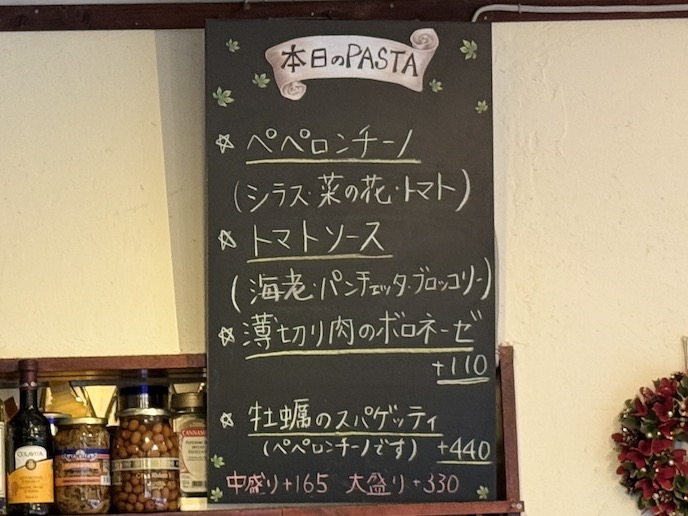 本日のPASTA
☆ ペペロンチーノ
(シラス・菜の花・トマト)
☆ トマトソース
(海老・パンチェッタ・ブロッコリー)
☆ 薄切り肉のボロネーゼ
+110
☆ 牡蠣のスパゲッティ
(ペペロンチーノです) +440
中盛り+165 大盛り+330
COLAVITA